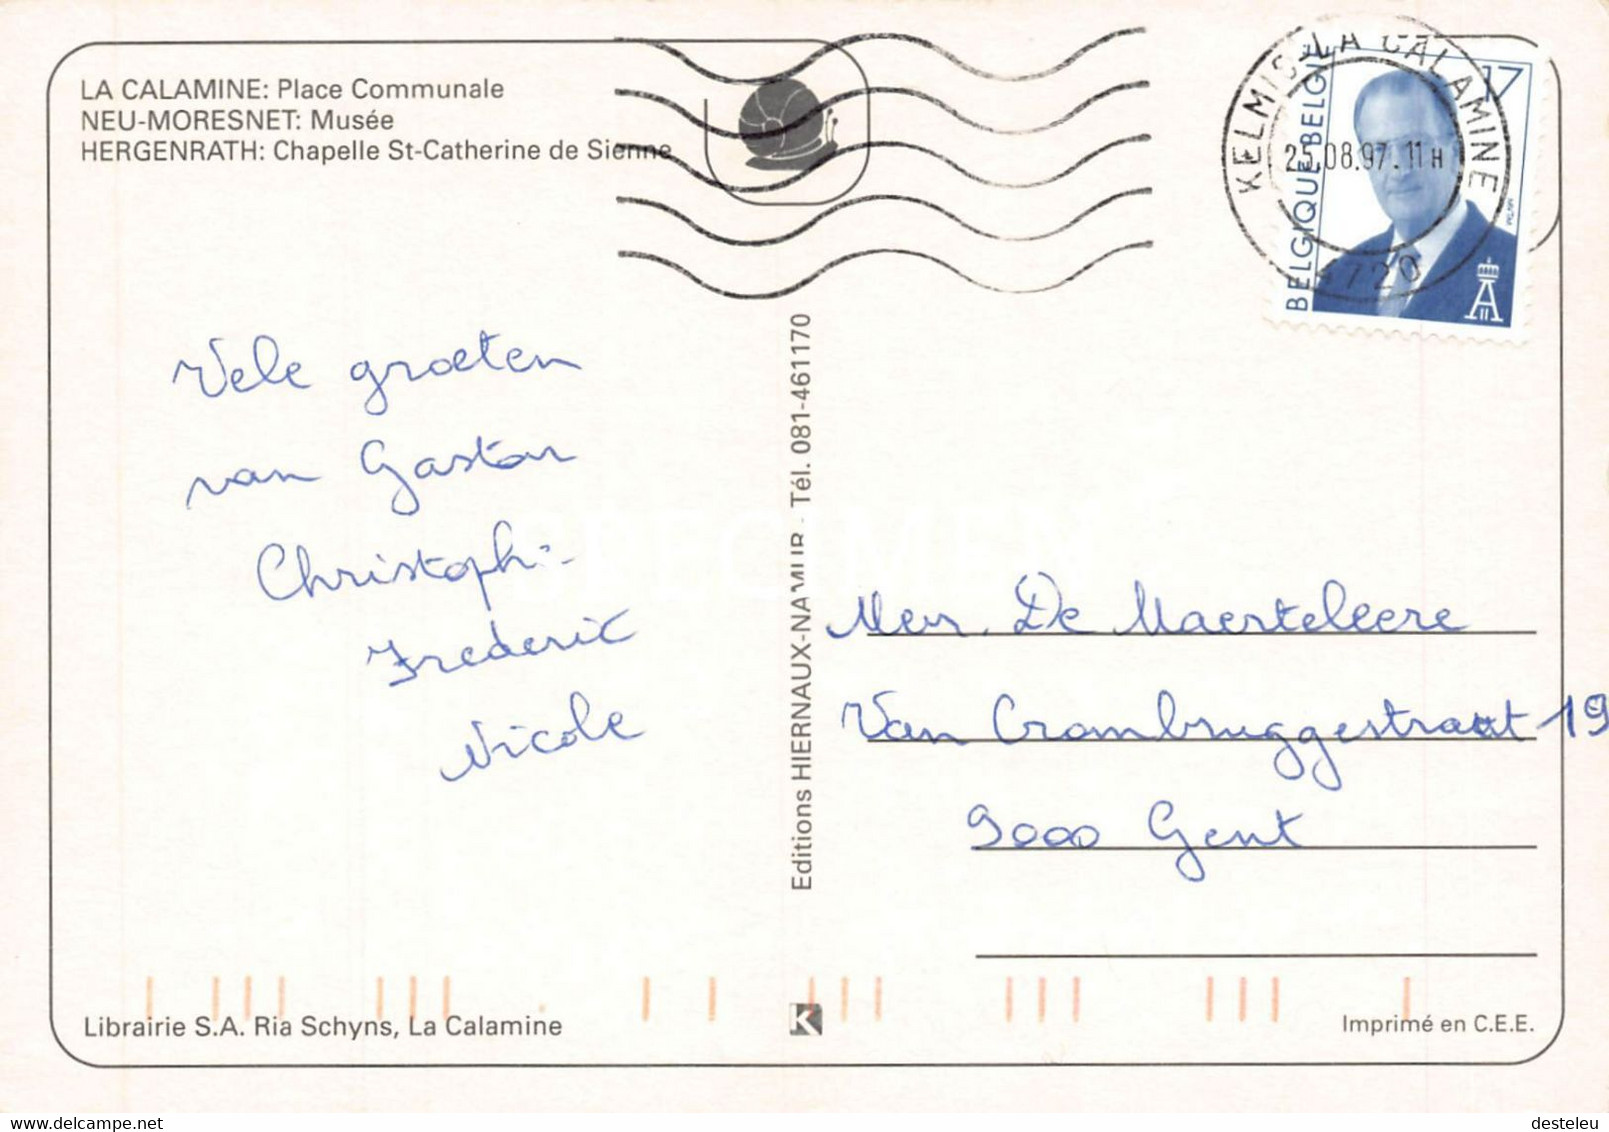 LA CALAMINE: Place Communale
NEU-MORESNET: Musée
HERGENRATH: Chapelle St-Catherine de Sienne
KELMIS-LA CALAMINE
25.08.97.11H
4720
17
BELGIQUE-BELGIË
Vele groeten
van Gaston
Christoph
Frederik
Nicole
Editions HIERNAUX-NAMUR - Tél. 081-461170
Mevr. De Maerteleere
Van Crombruggestraat 19
9000 Gent
Librairie S.A. Ria Schyns, La Calamine
K
Imprimé en C.E.E.
SPECIMEN
desteleu